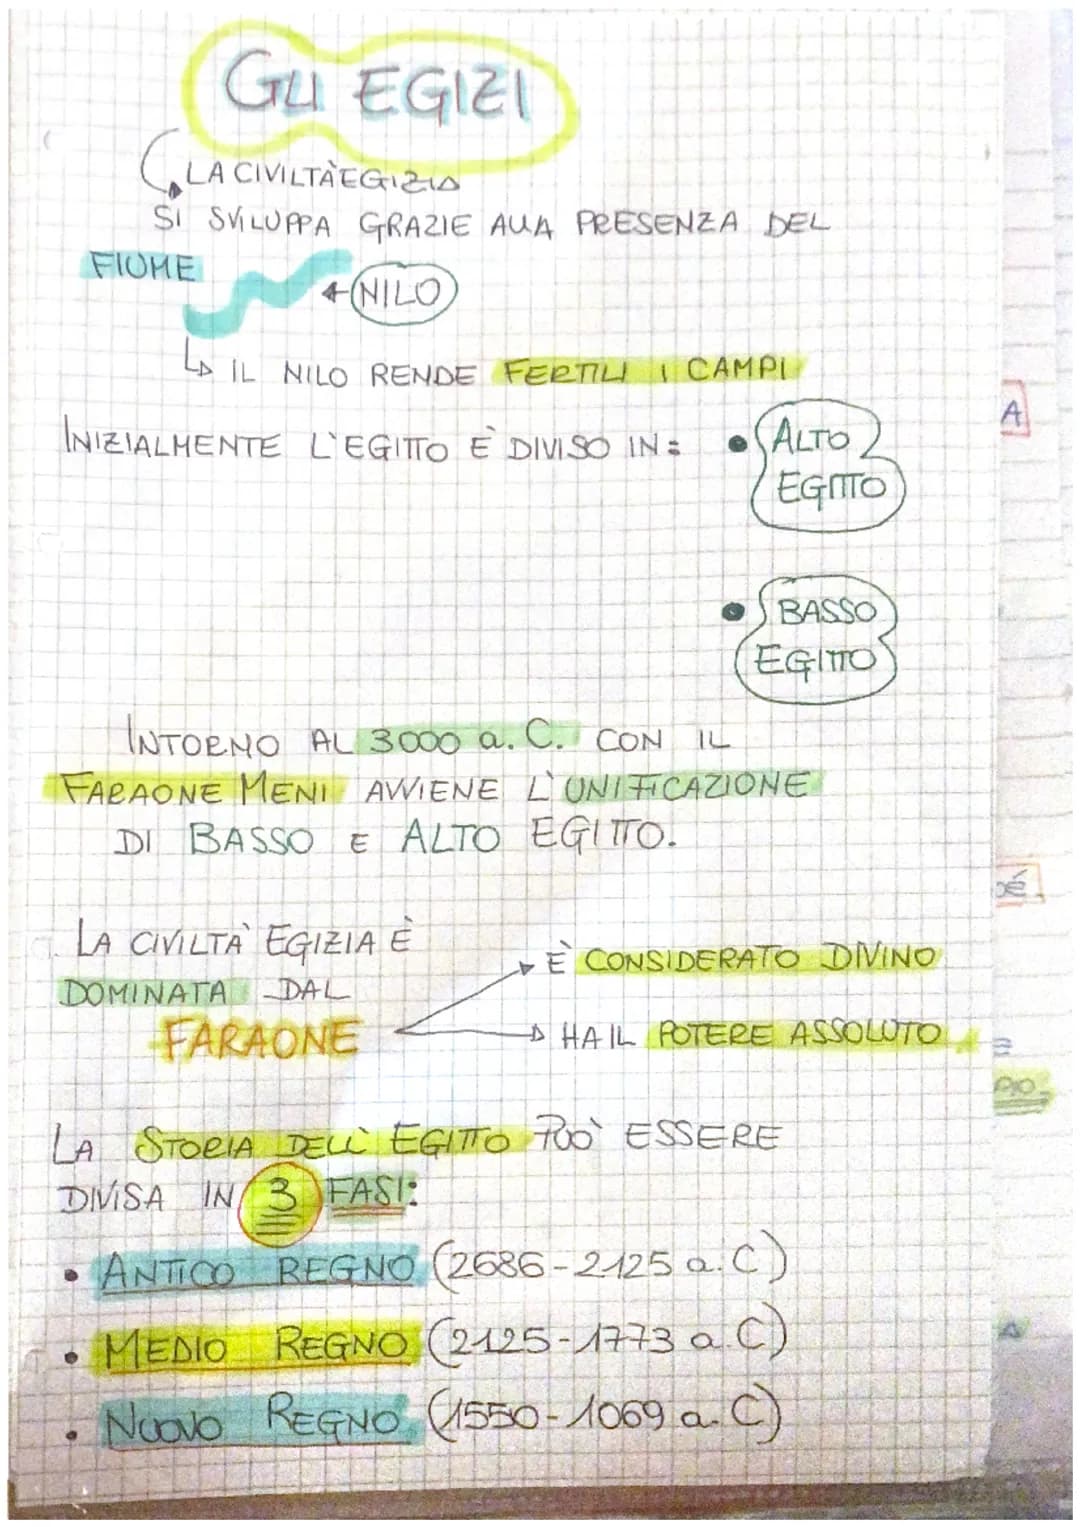 GLI EGIZI
LA CIVILTÀ EGIZIA
SI SVILUPPA GRAZIE ALLA PRESENZA DEL
FIUME
NILO
IL NILO RENDE FERTILI I CAMPI
INIZIALMENTE L'EGITTO È DIVISO IN:
• ALTO
EGITTO
• BASSO
EGITTO
INTORNO AL 3000 a.C. CON IL
FARAONE MENI AVVIENE L'UNIFICAZIONE
DI BASSO E ALTO EGITTO.
LA CIVILTÀ EGIZIA È
DOMINATA DAL
FARAONE
È CONSIDERATO DIVINO
HA IL POTERE ASSOLUTO
LA STORIA DELL'EGITTO PUÒ ESSERE
DIVISA IN 3 FASI:
• ANTICO REGNO (2686-2125 a.C)
• MEDIO REGNO (2125-1773 a.C)
• NUOVO REGNO (1550-1069 a.C)
A